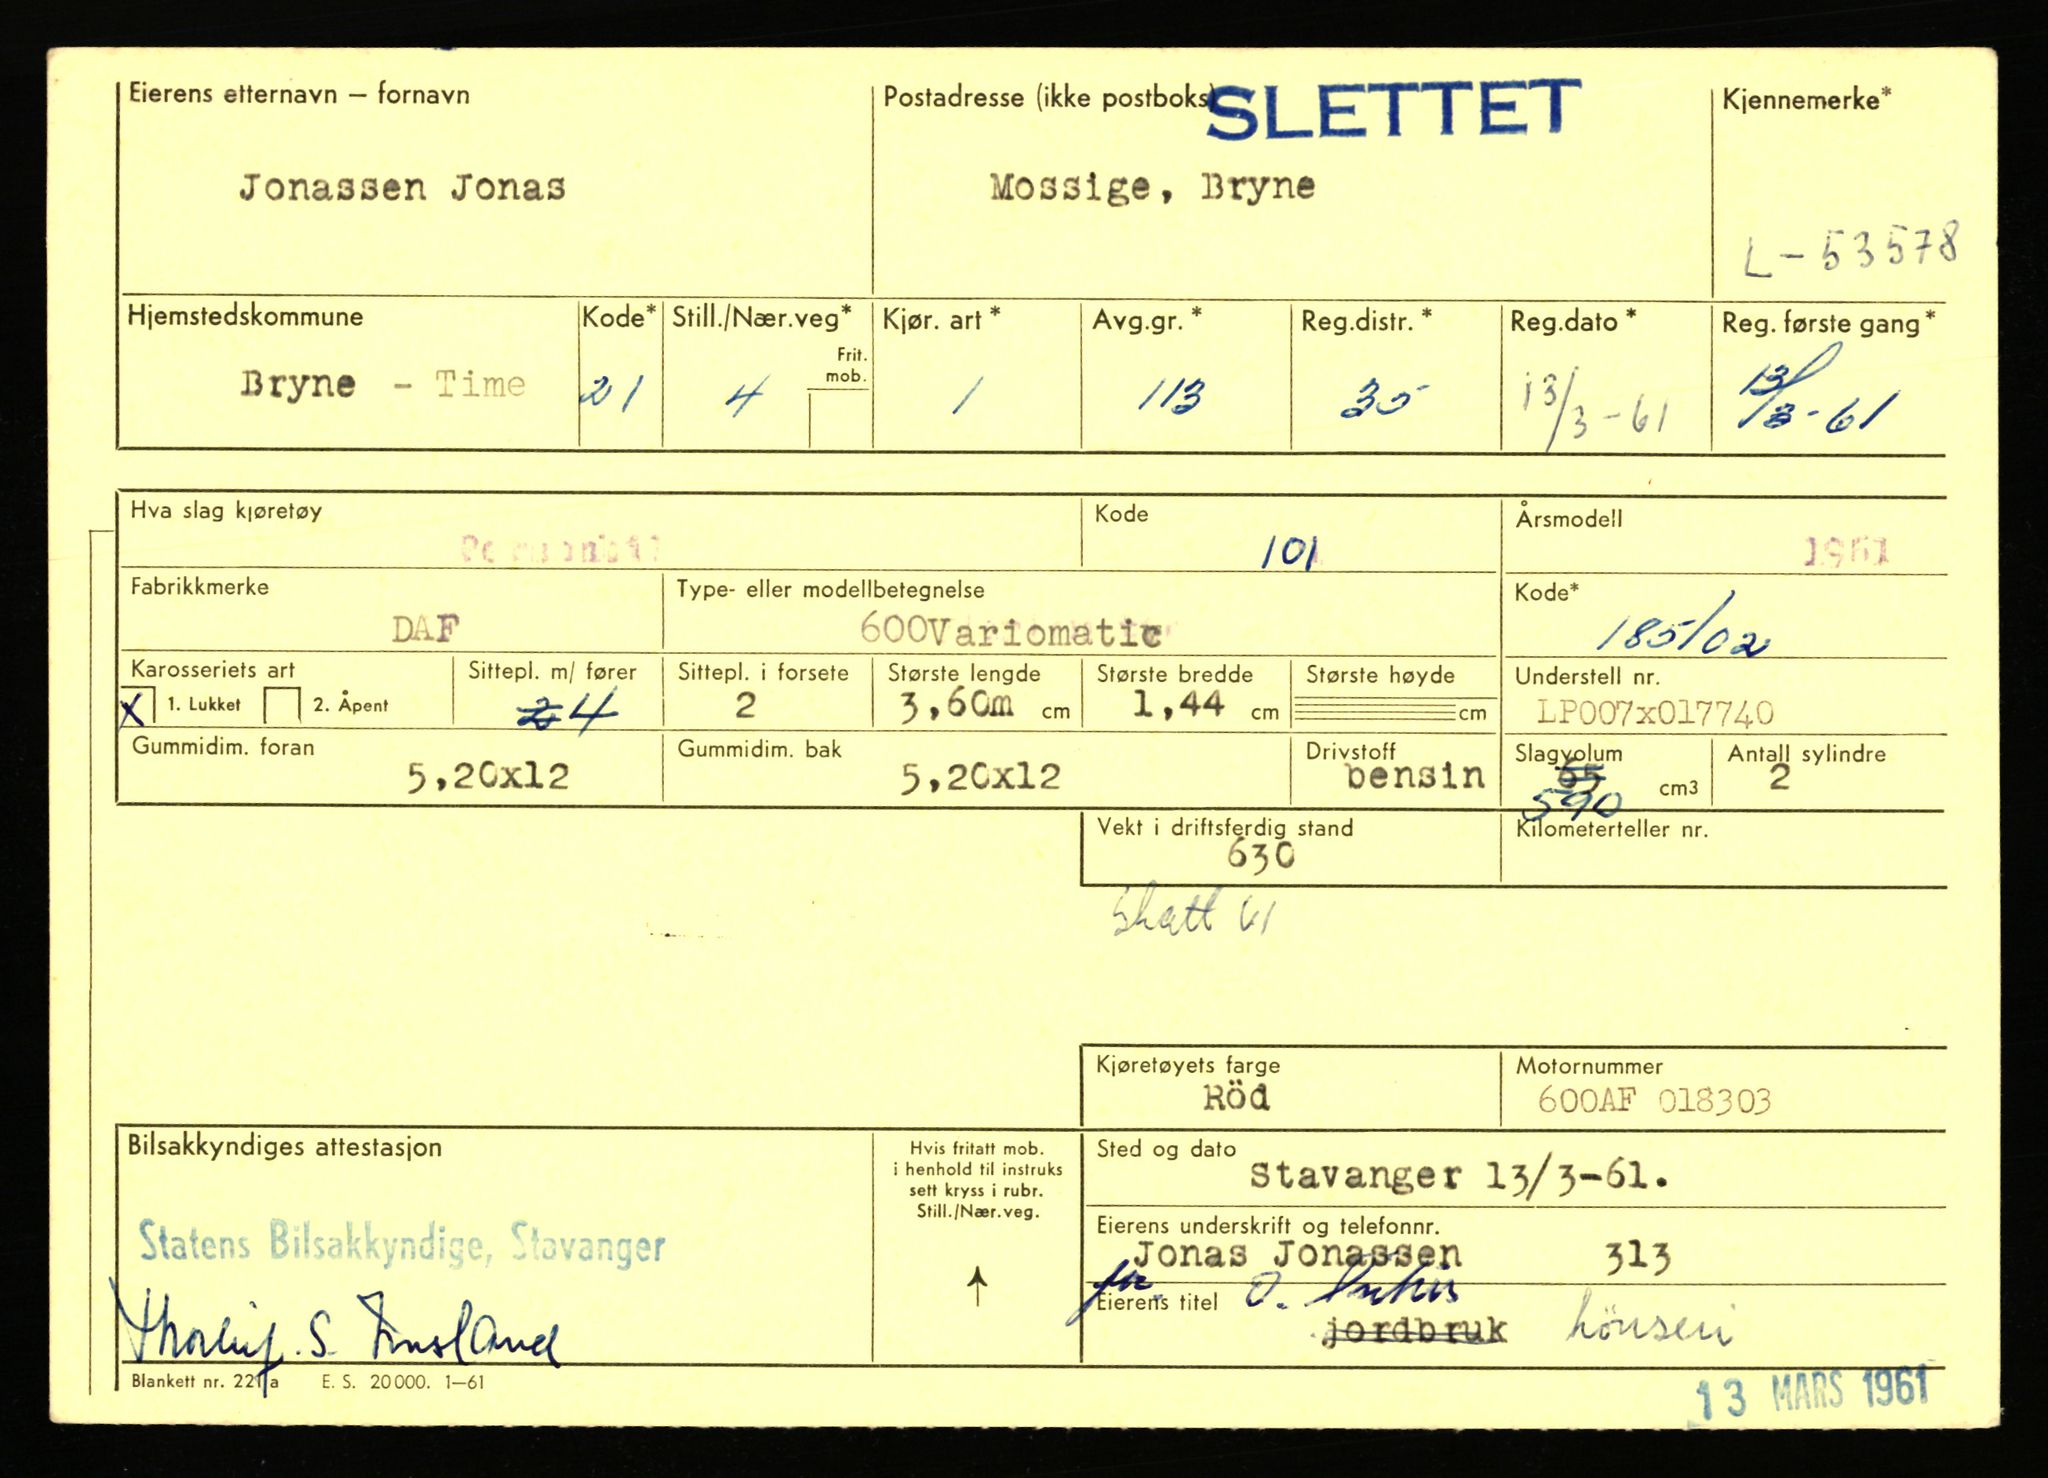 SLETTET
Eierens etternavn – fornavn
Jonassen Jonas
Postadresse (ikke postboks)
Mossige, Bryne
Kjennemerke*
L-53578
Hjemstedskommune
Bryne - Time
Kode*
21
Still./Nær.veg*
4
Frit.
mob.
Kjør. art*
1
Avg.gr.*
113
Reg.distr.*
35
Reg.dato*
13/3-61
Reg. første gang*
13/3-61
Hva slag kjøretøy
Personbil
Kode
101
Årsmodell
1961
Fabrikkmerke
DAF
Type- eller modellbetegnelse
600Variomatic
Kode*
185/02
Karosseriets art
X 1. Lukket 2. Åpent
Sittepl. m/ fører
2 4
Sittepl. i forsete
2
Største lengde
3,60m cm
Største bredde
1,44 cm
Største høyde
cm
Understell nr.
LP007x017740
Gummidim. foran
5,20x12
Gummidim. bak
5,20x12
Drivstoff
bensin
Slagvolum
65
590 cm3
Antall sylindre
2
Vekt i driftsferdig stand
630
Kilometerteller nr.
Skatt 61
Kjøretøyets farge
Röd
Motornummer
600AF 018303
Bilsakkyndiges attestasjon
Statens Bilsakkyndige, Stavanger
S.
Hvis fritatt mob.
i henhold til instruks
sett kryss i rubr.
Still./Nær.veg.
↑
Sted og dato
Stavanger 13/3-61.
Eierens underskrift og telefonnr.
Jonas Jonassen 313
for O.
Eierens titel
jordbruk hönseri
Blankett nr. 221 a E. S. 20 000. 1–61
13 MARS 1961